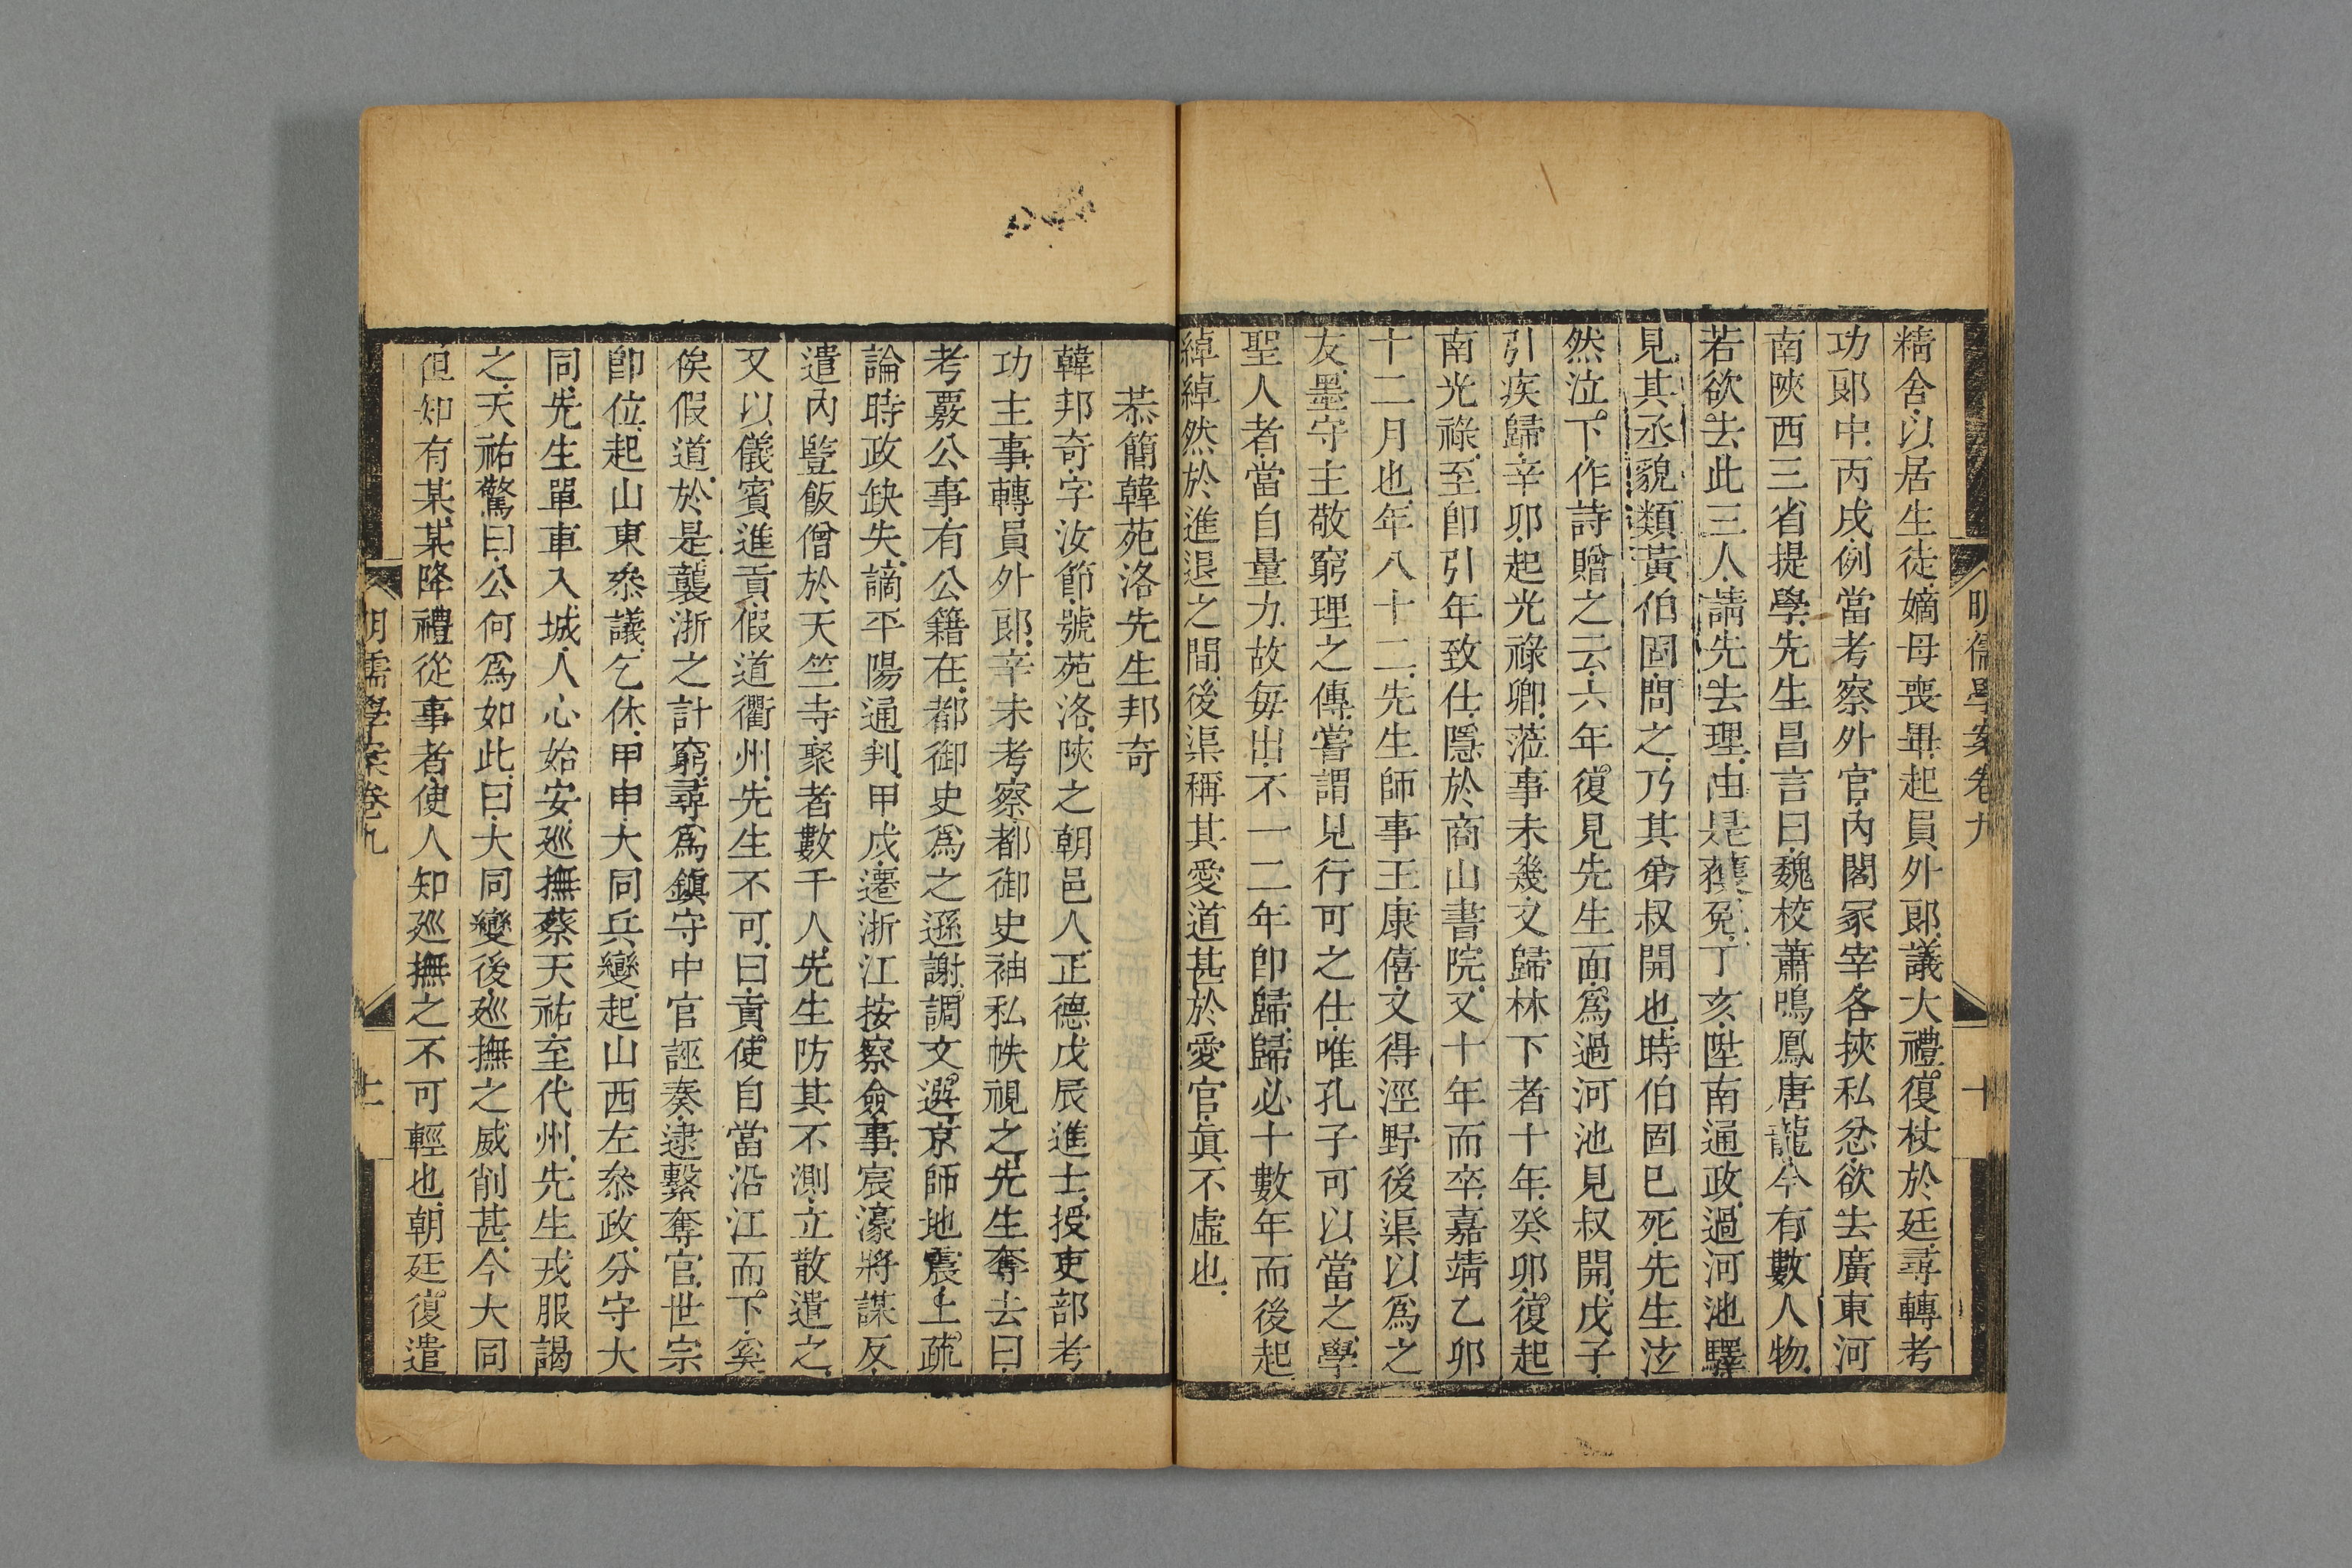 明儒學案卷九
十
精舍以居生徒嫡母喪畢起員外郎議大禮復杖於廷尋轉考
功郎中丙戌例當考察外官內閣冢宰各挾私忿欲去廣東河
南陝西三省提學先生昌言曰魏校蕭鳴鳳唐龍今有數人物
若欲去此三人請先去理由是獲免丁亥陞南通政過河池驛
見其丞貌類黃伯固問之乃其弟叔開也時伯固已死先生泫
然泣下作詩贈之云六年復見先生面爲過河池見叔開戊子
引疾歸辛卯起光祿卿蒞事未幾又歸林下者十年癸卯復起
南光祿至卽引年致仕隱於商山書院又十年而卒嘉靖乙卯
十二月也年八十二先生師事王康僖又得涇野後渠以爲之
友墨守主敬窮理之傳嘗謂見行可之仕唯孔子可以當之學
聖人者當自量力故每出不一二年卽歸歸必十數年而後起
綽綽然於進退之間後渠稱其愛道甚於愛官眞不虛也
恭簡韓苑洛先生邦奇
韓邦奇字汝節號苑洛陝之朝邑人正德戊辰進士授吏部考
功主事轉員外郎辛未考察都御史袖私帙視之先生奪去曰
考覈公事有公籍在都御史爲之遜謝調文選京師地震上疏
論時政缺失謫平陽通判甲戌遷浙江按察僉事宸濠將謀反
遣內豎飯僧於天竺寺聚者數千人先生防其不測立散遣之
又以儀賓進貢假道衢州先生不可曰貢使自當沿江而下奚
俟假道於是襲浙之計窮尋爲鎭守中官誣奏逮繫奪官世宗
卽位起山東叅議乞休甲申大同兵變起山西左叅政分守大
同先生單車入城人心始安巡撫蔡天祐至代州先生戎服謁
之天祐驚曰公何爲如此曰大同變後巡撫之威削甚今大同
但知有某某降禮從事者使人知巡撫之不可輕也朝廷復遣
明儒學案卷九
十一